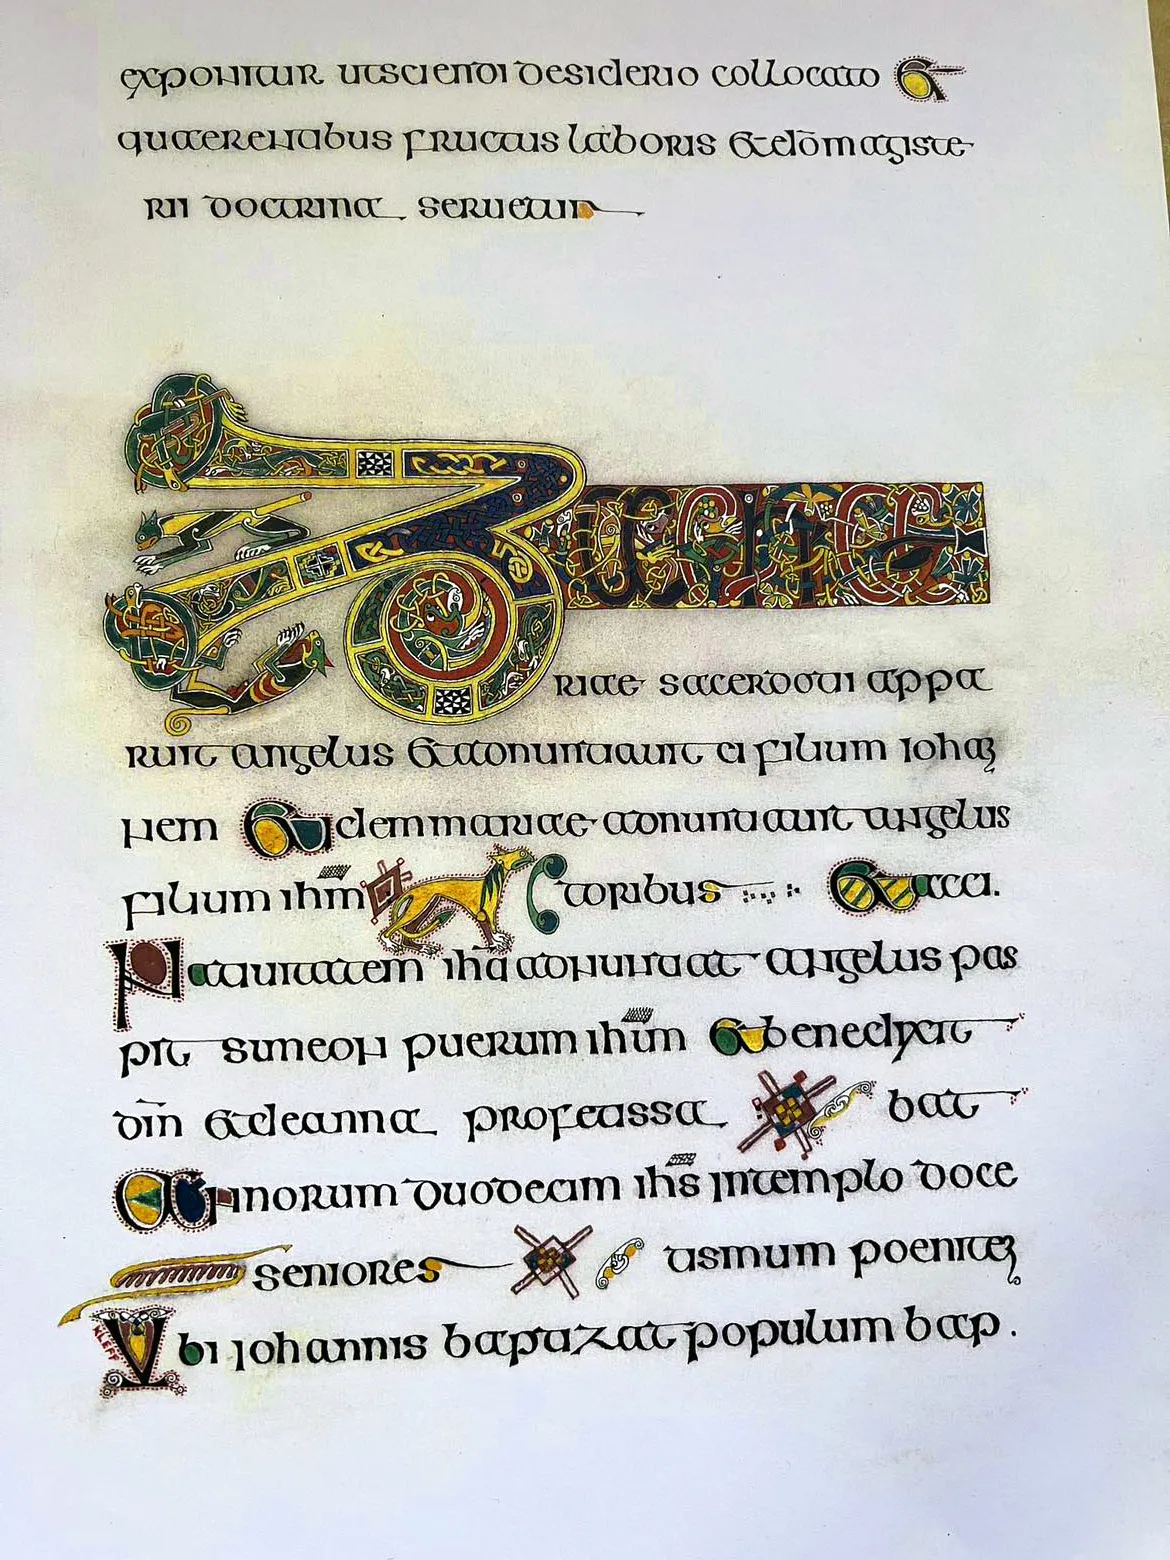 exponitur utsciendi desiderio collocato &
quaerentibus fructus laboris &dōmagiste
rii doctrina seruetur
Zacha
riae sacerdoti appa
ruit angelus &adnuntiauit ei filium Iohan
nem &idemmariae adnuntiauit angelus
filium ihm̄ toribus &acci.
Natiuitatem ihū adnuntiat angelus pas
pit simeon puerum ihm̄ &benedixit
dm̄ &deanna profetissa bat
Annorum duodecim ihs̄ intemplo doce
seniores tismum poenite
Vbi iohannis baptizat populum bap.
KLEFF